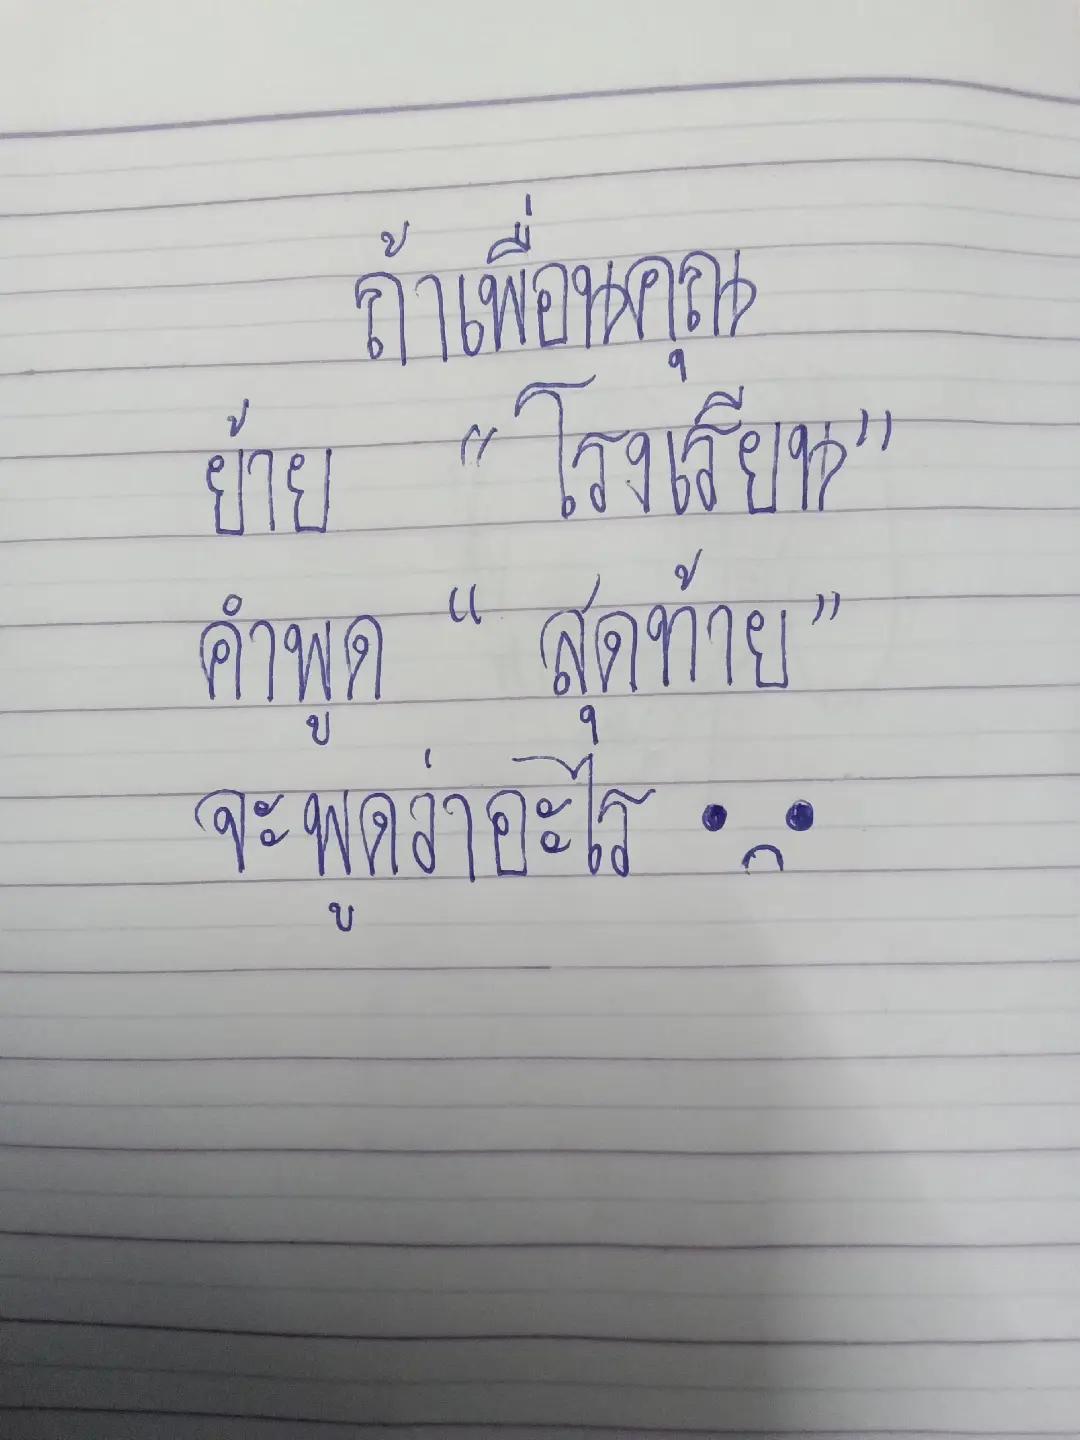 ถ้าเพื่อนคุณ
ย้าย "โรงเรียน"
คำพูด "สุดท้าย"
จะพูดว่าอะไร